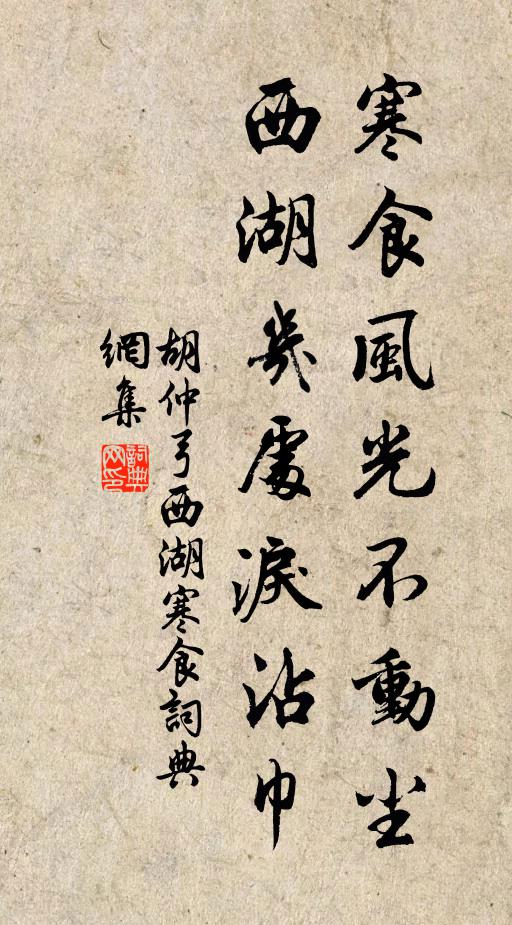 寒食風光不動尘
西湖幾處淚沾巾
胡仲弓西湖寒食詞典
網集
詞典网印